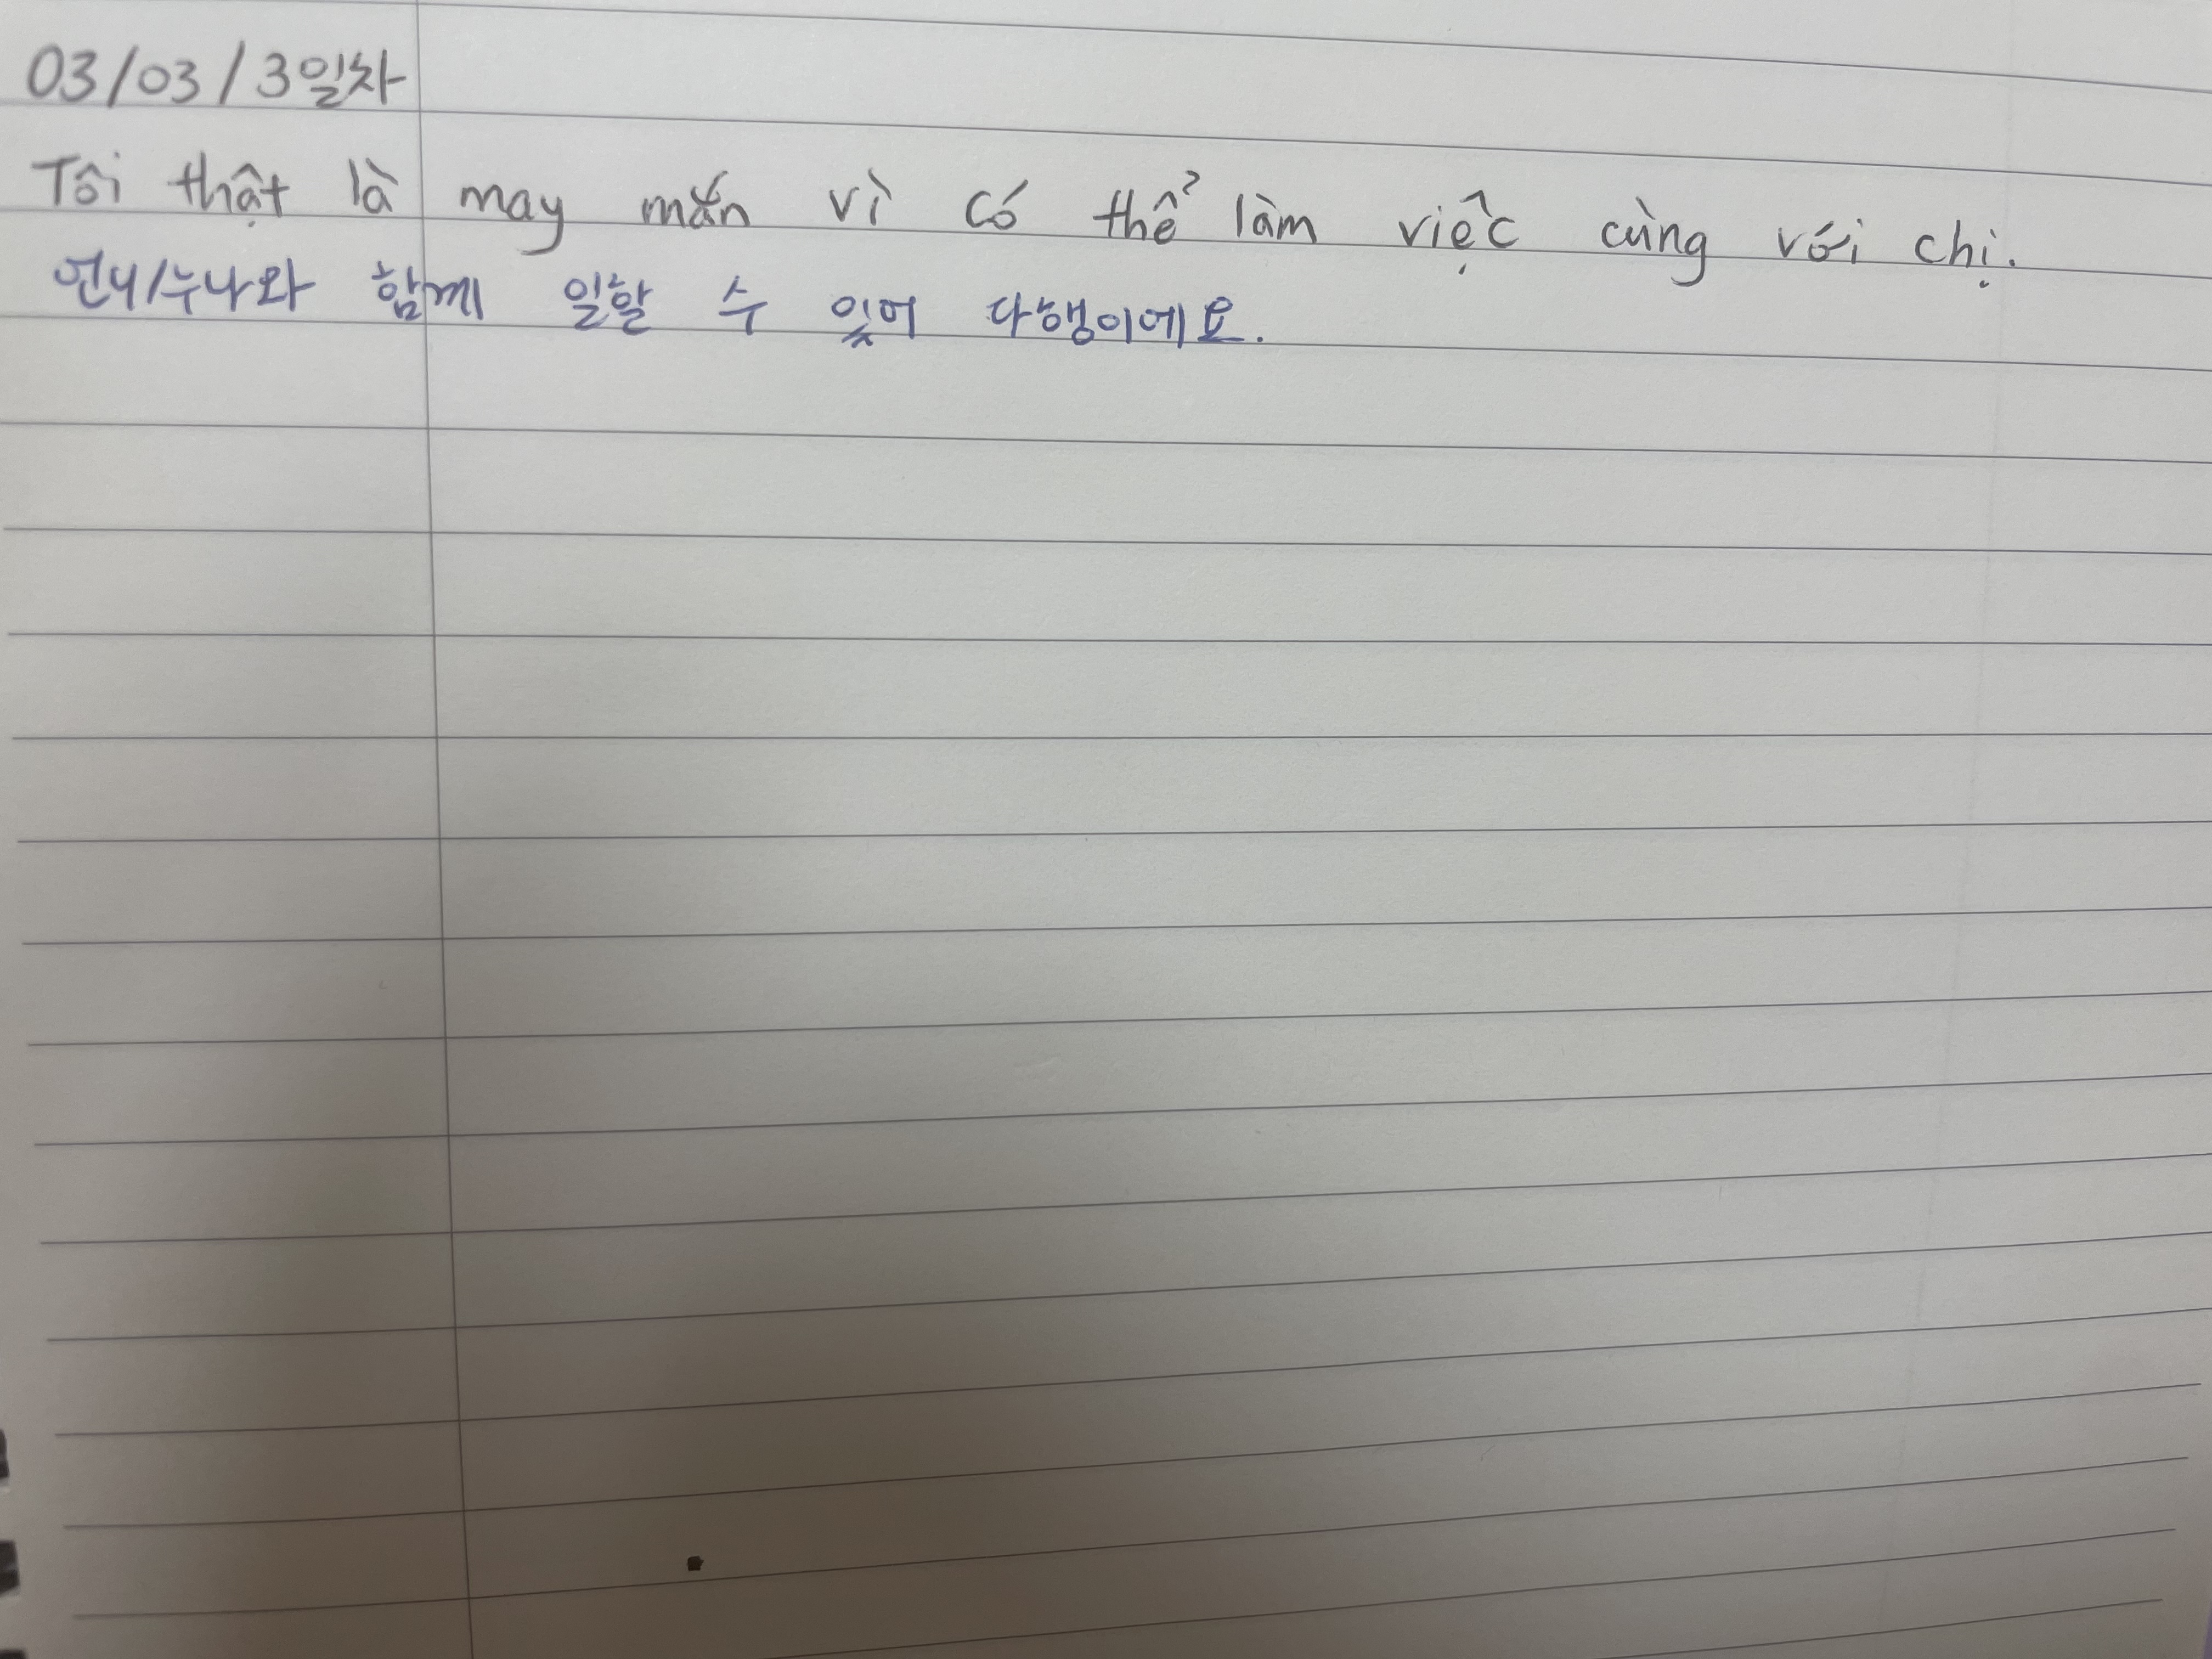 03/03/3일차
Tôi thật là may mắn vì có thể làm việc cùng với chị.
언니/누나와 함께 일할 수 있어 다행이에요.